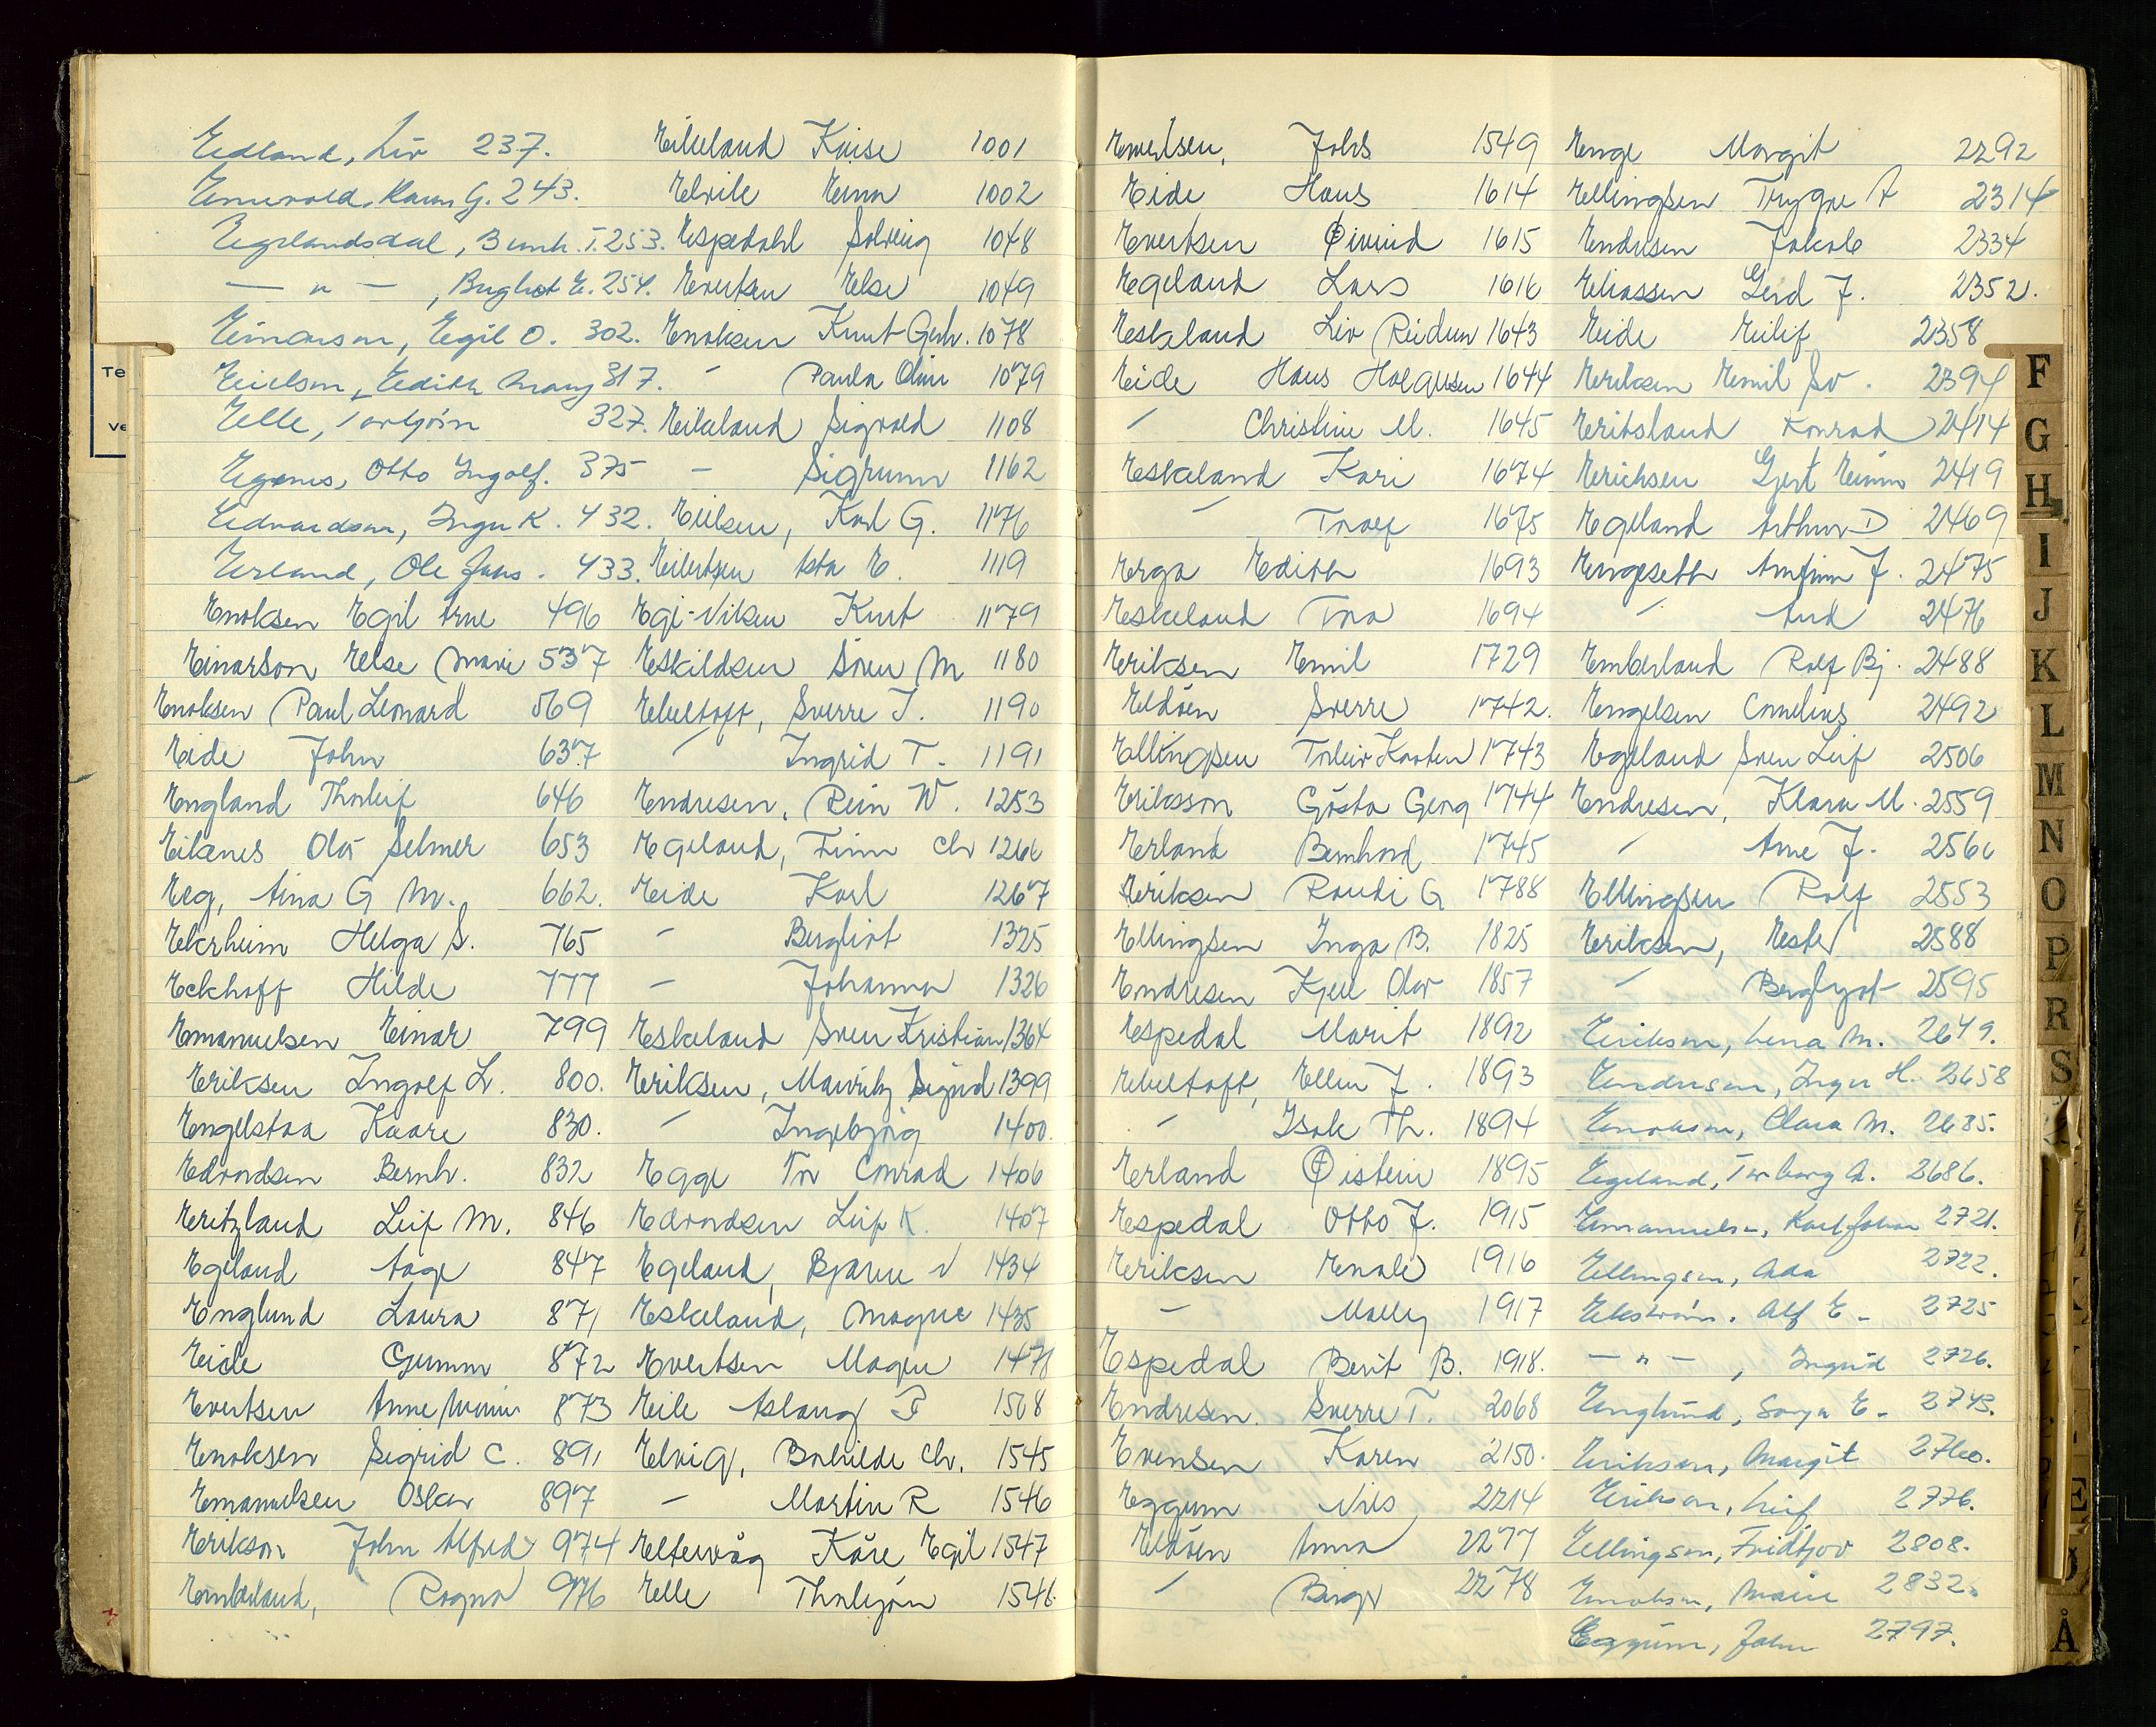 Edland, Liv 237.
Emerold, Karen G. 243.
Egelandsdal, Bernh. T. 253.
— " — , Bergliot E. 254.
Einarson, Egil O. 302.
Eielson, Edith Mary 317.
Elle, Torbjørn 327.
Egenes, Otto Ingolf. 375
Edvardsen, Inger K. 432.
Erland, Ole Jans. 433.
Enoksen Egil Arne 496
Einarson Else Marie 537
Enoksen Paul Leonard 569
Eide John 637
England Thorleif 646
Eikenes Olav Selmer 653
Eeg, Aina G M. 662.
Ekerheim Helga S. 765
Eckhoff Hilde 777
Emanuelsen Einar 799
Eriksen Ingolf L. 800.
Engelstad Kaare 830.
Edvardsen Bernh. 832
Eritzland Leif M. 846
Egeland Aage 847
Englund Laura 871
Eide Gunnar 872
Evertsen Anne Marie 873
Enoksen Sigrid C. 891
Emanuelsen Oskar 897
Erikson John Alfred 974
Emberland, Ragna 976
Eikeland Kaise 1001
Elvik Einar 1002
Espedahl Solveig 1048
Evertsen Else 1049
Enoksen Knut Gerh. 1078
- Paula Oline 1079
Eikeland Sigvald 1108
- Sigrunn 1162
Eielsen, Karl G. 1176
Eilertsen Asta E. 1119
Ege-Nilsen Knut 1179
Eskildsen Sören M 1180
Ebeltoft, Sverre J. 1190
- Ingrid T. 1191
Endresen, Rein W. 1253
Egeland, Finn Chr 1266
Eide Karl 1267
- Bergliot 1325
- Johanna 1326
Eskeland Sven Kristian 1364
Eriksen, Mauritz Sigurd 1399
- Ingebjørg 1400.
Egge Tor Conrad 1406
Edvardsen Leif K. 1407
Egeland, Bjarne V 1434
Eskeland, Magne 1435
Evertsen Magne 1478
Eile Aslaug P 1508
Elvig, Bothilde Chr. 1545
- Martin R 1546
Eltervåg Kåre Egil 1547
Elle Thorbjørn 1548
Evertsen, Johs 1549
Eide Hans 1614
Evertsen Øivind 1615
Egeland Lars 1616
Eskeland Liv Reidun 1643
Eide Hans Halgusen 1644
- Christine M. 1645
Eskeland Kari 1674
- Tralf 1675
Erga Edith 1693
Eskeland Tora 1694
Eriksen Emil 1729
Eldöen Sverre 1742.
Ellingsen Torleiv Karsten 1743
Eriksson Gösta Georg 1744
Erland Bernhard 1745
Eriksen Randi G 1788
Ellingsen Inga B. 1825
Endresen Kjell Olav 1857
Espedal Marit 1892
Ebeltoft, Ellen J. 1893
- Isak Th. 1894
Erland Øistein 1895
Espedal Otto J. 1915
Eriksen Enok 1916
- Molly 1917
Espedal Berit B. 1918.
Endresen. Sverre T. 2068
Evensen Karen 2150.
Eggum Nils 2214
Eldöen Anna 2277
- Birger 2278
Enge Margit 2292
Ellingsen Trygve A 2314
Endresen Jakob 2334
Eliassen Gerd J. 2352.
Eide Eilif 2358
Eriksen Emil Sv. 2394
Eritsland Konrad 2414
Erichsen Gert Einar 2419
Egeland Arthur D 2469
Engeseth Arnfinn J. 2475
- Aud 2476
Emberland Rolf Bj. 2488
Engelsen Cornelius 2492
Egeland Sven Leif 2506
Endresen, Klara M. 2559
- Arne J. 2560
Ellingsen Rolf 2553
Eriksen, Ester 2588
- Bergljot 2595
Erikson, Lena M. 2649.
Endresen, Inger H. 2658
Enoksen, Clara M. 2685.
Egeland, Torborg A. 2686.
Emanuelsen, Karl Johan 2721.
Ellingsen, Ada 2722.
Ekström, Alf E. 2725
— " — , Ingrid 2726.
Englund, Sonja E. 2743.
Eriksen, Margit 2760.
Eriksen, Leif 2776.
Ellingsen, Fridtjov 2808.
Enoksen, Marie 2832.
Eggum, John 2797.
Te
ve
F
G
H
I
J
K
L
M
N
O
P
R
S
E
Å